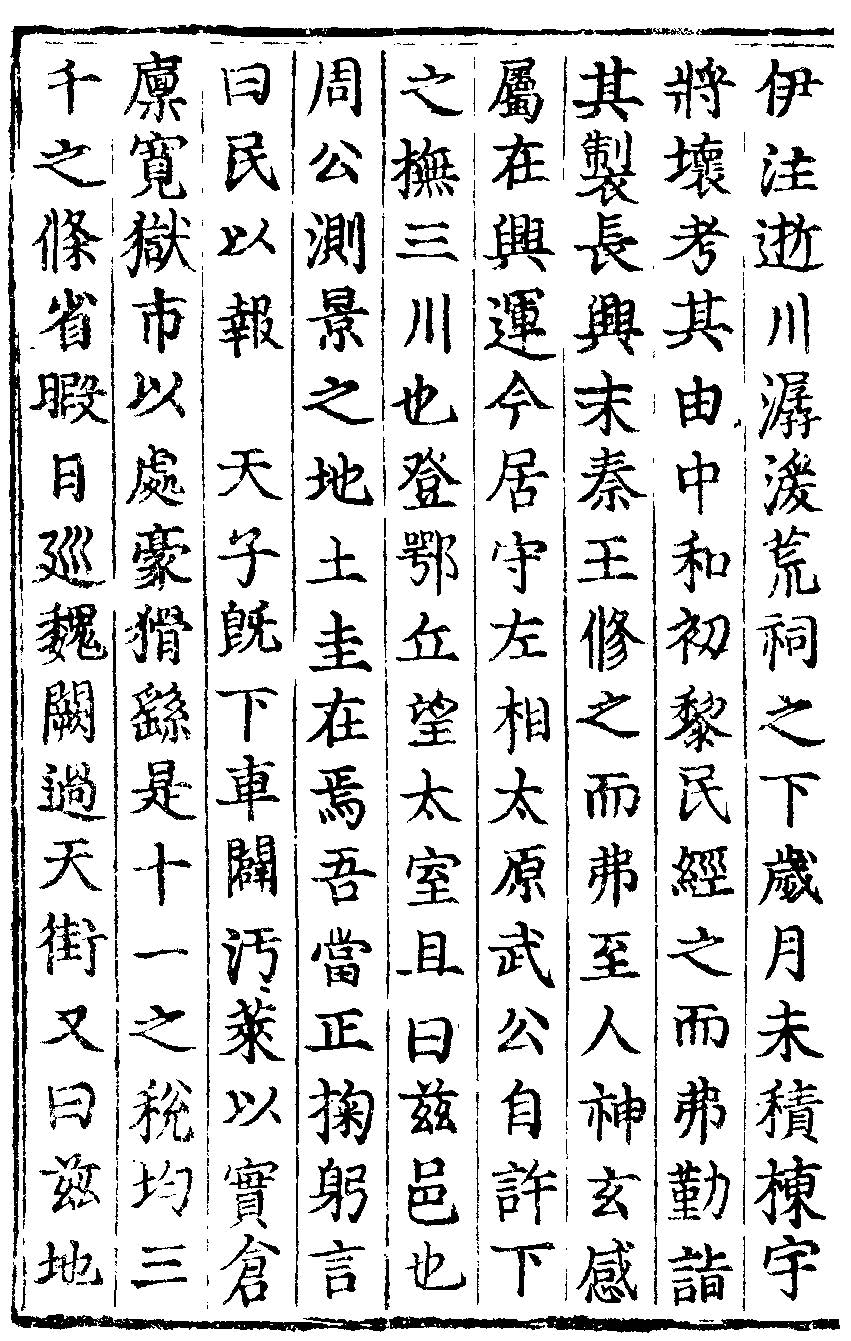 伊注逝川潺湲荒祠之下歲月未積棟宇
將壞考其由中和初黎民經之而弗勤詣
其製長興末秦王修之而弗至人神玄感
屬在興運今居守左相太原武公自許下
之撫三川也登鄂丘望太室且曰兹邑也
周公測景之地土圭在焉吾當正掬躬言
曰民以報　天子旣下車闢汚萊以實倉
廪寛獄市以處豪猾繇是十一之稅均三
千之條省暇日廵魏闕過天街又曰兹地